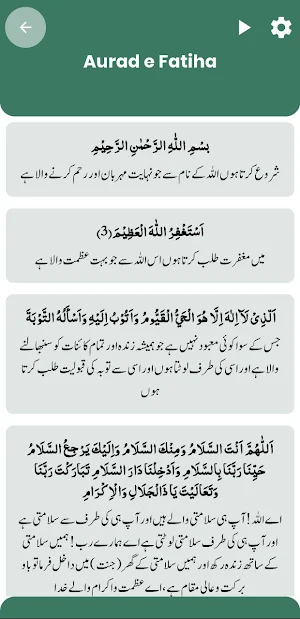 Aurad e Fatiha
بِسْمِ اللّٰهِ الرَّحْمٰنِ الرَّحِيْمِ
شروع کرتا ہوں اللہ کے نام سے جو نہایت مہربان اور رحم کرنے والا ہے
اَسْتَغْفِرُ اللّٰهَ الْعَظِيْمَ (3)
میں مغفرت طلب کرتا ہوں اس اللہ سے جو بہت عظمت والا ہے
اَلَّذِيْ لَآ اِلٰهَ اِلَّا هُوَ الْحَيُّ الْقَيُّومُ وَاَتُوْبُ اِلَيْهِ وَاَسْأَلُهُ التَّوْبَةَ
جس کے سوا کوئی معبود نہیں ہے جو ہمیشہ زندہ اور تمام کائنات کو سنبھالنے
والا ہے اور اسی کی طرف لوٹتا ہوں اور اسی سے توبہ کی قبولیت طلب کرتا
ہوں
اَللّٰهُمَّ اَنْتَ السَّلَامُ وَمِنْكَ السَّلَامُ وَاِلَيْكَ يَرْجِعُ السَّلَامُ
حَيِّنَا رَبَّنَا بِالسَّلَامِ وَاَدْخِلْنَا دَارَ السَّلَامِ تَبَارَكْتَ رَبَّنَا
وَتَعَالَيْتَ يَا ذَالْجَلَالِ وَالْاِكْرَامِ
اے اللہ! آپ ہی سلامتی والے ہیں اور آپ ہی کی طرف سے سلامتی ہے
اور آپ ہی کی طرف سلامتی لوٹتی ہے اے ہمارے رب! ہمیں سلامتی
کے ساتھ زندہ رکھ اور ہمیں سلامتی کے گھر (جنت) میں داخل فرما تو با
برکت و عالی مقام ہے، اے عظمت و اکرام والے خدا